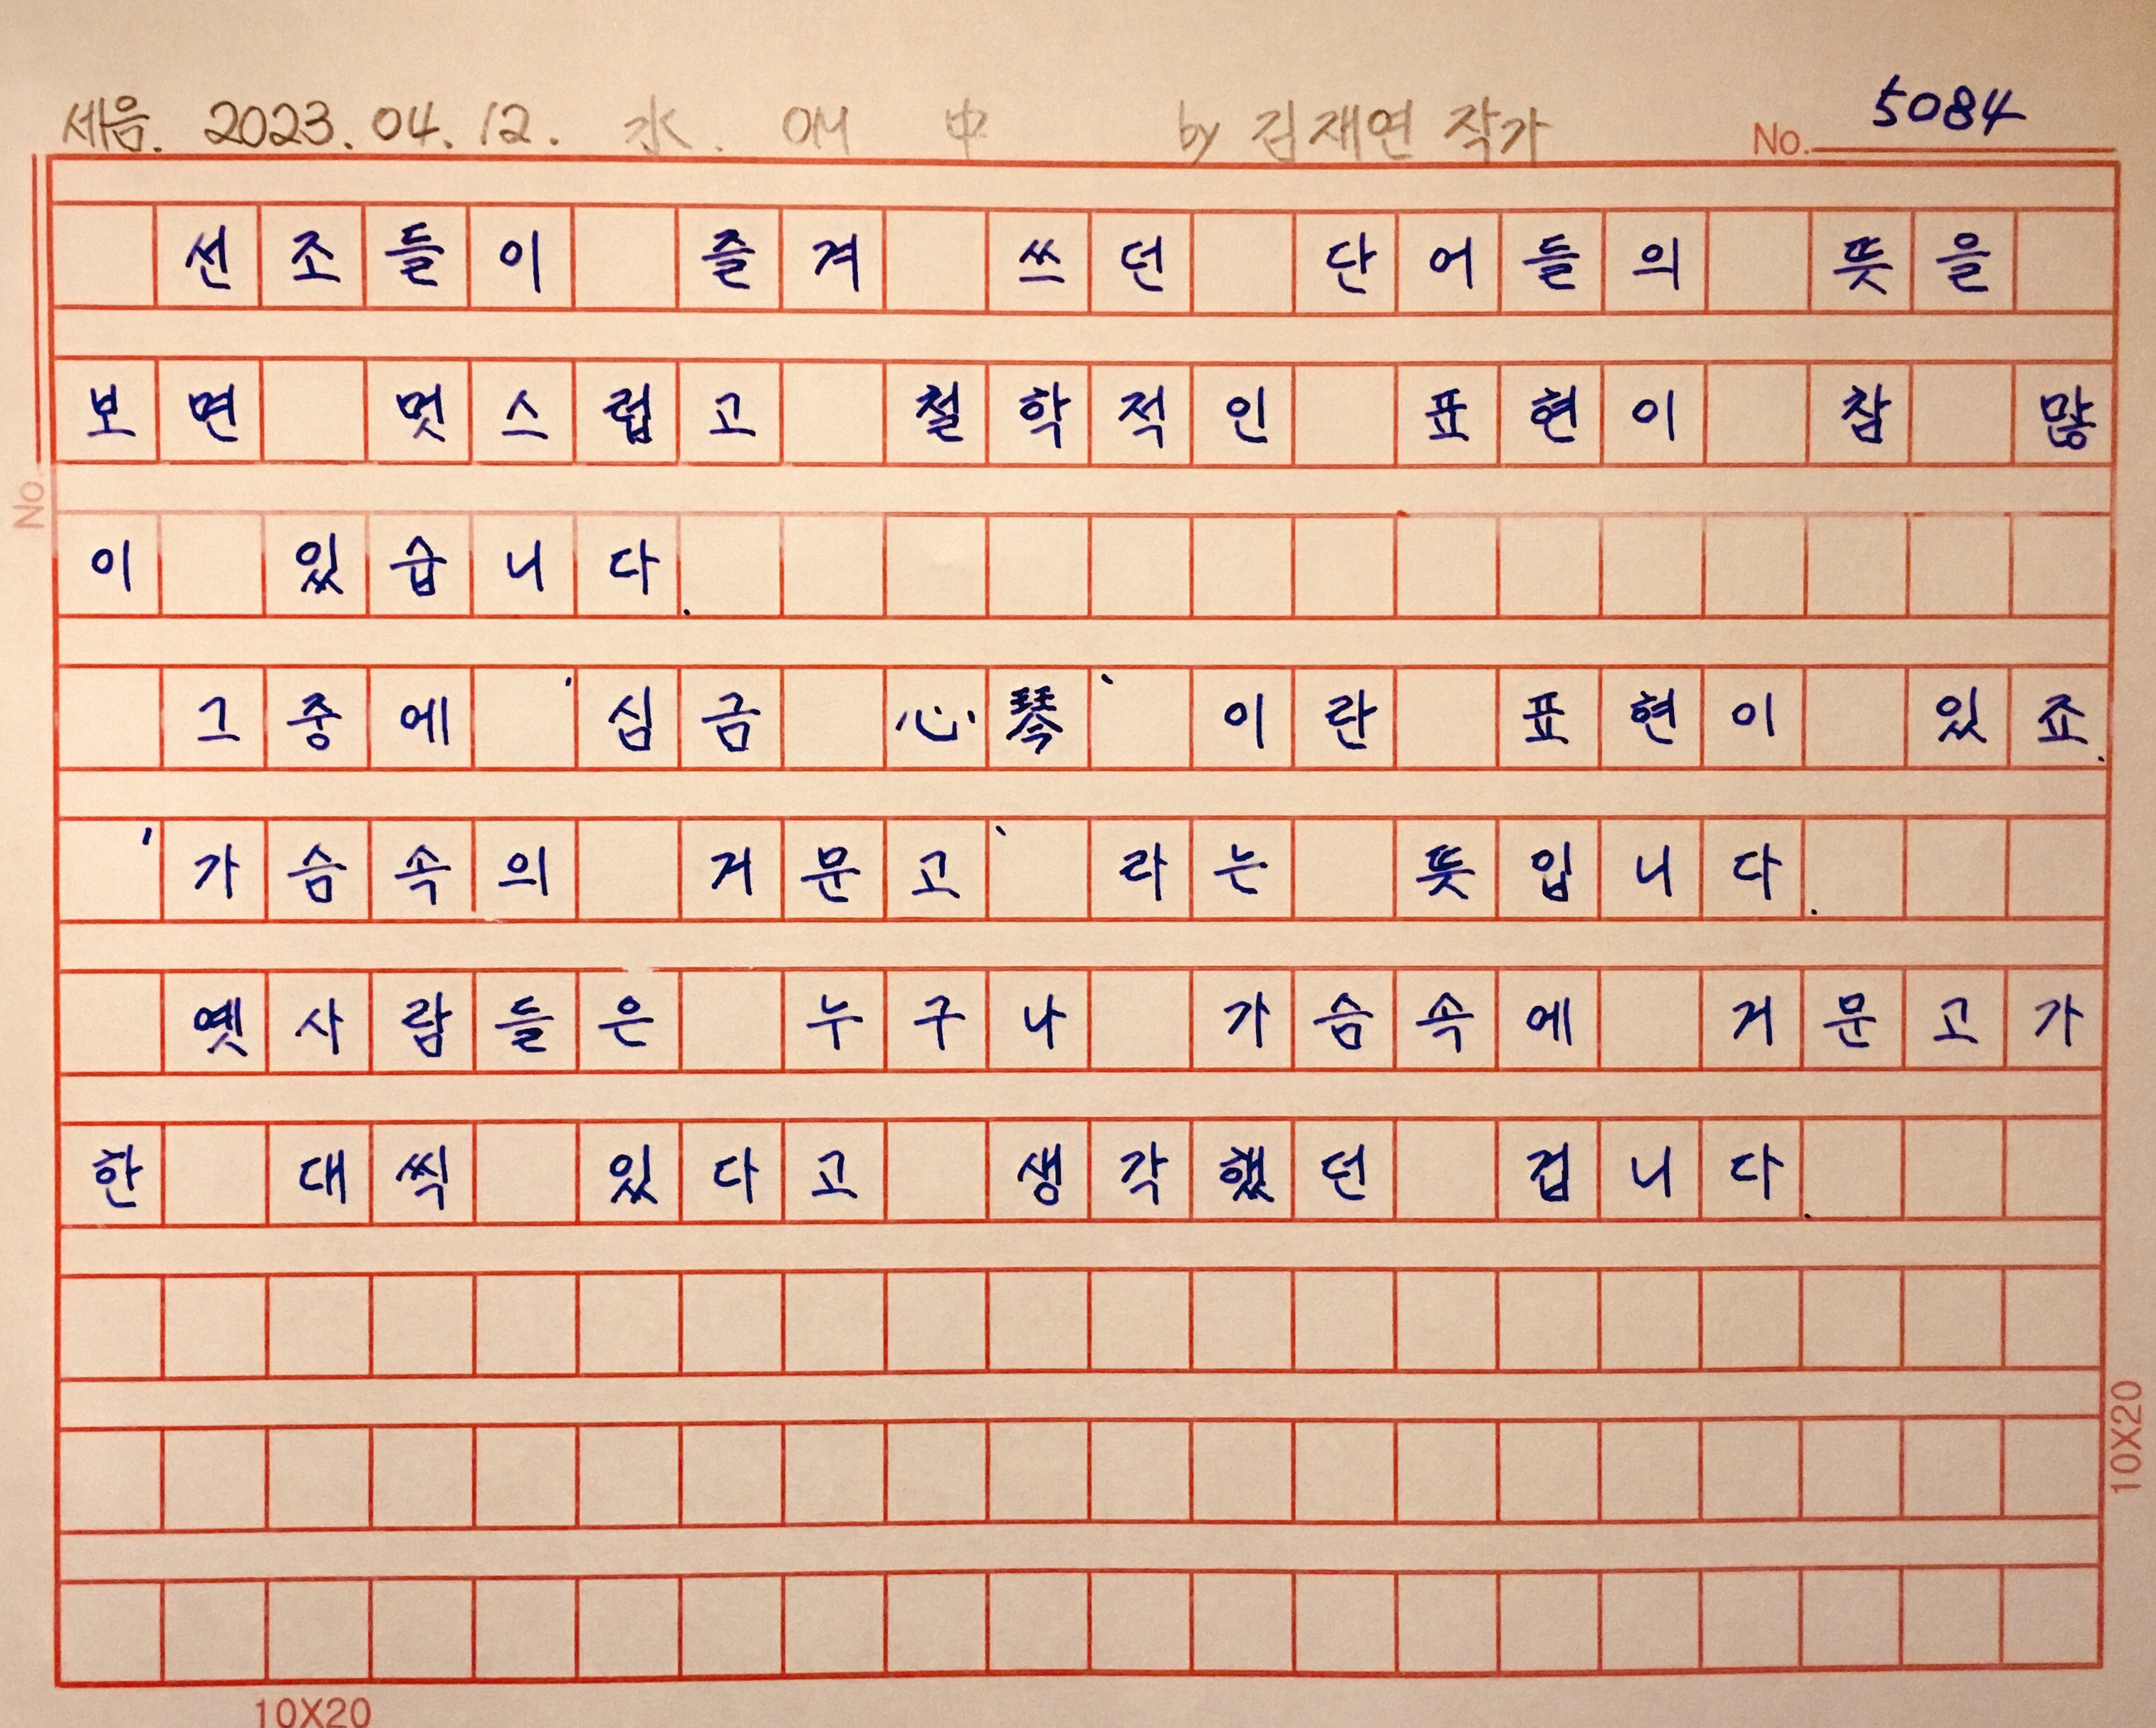 세음. 2023. 04. 12. 水. 0M 中 by 김재연 작가 No. 5084
선조들이 즐겨 쓰던 단어들의 뜻을
보면 멋스럽고 철학적인 표현이 참 많
이 있습니다.
그중에 '심금 心琴' 이란 표현이 있죠.
'가슴속의 거문고' 라는 뜻입니다.
옛사람들은 누구나 가슴속에 거문고가
한 대씩 있다고 생각했던 겁니다.
No.
10X20
10X20